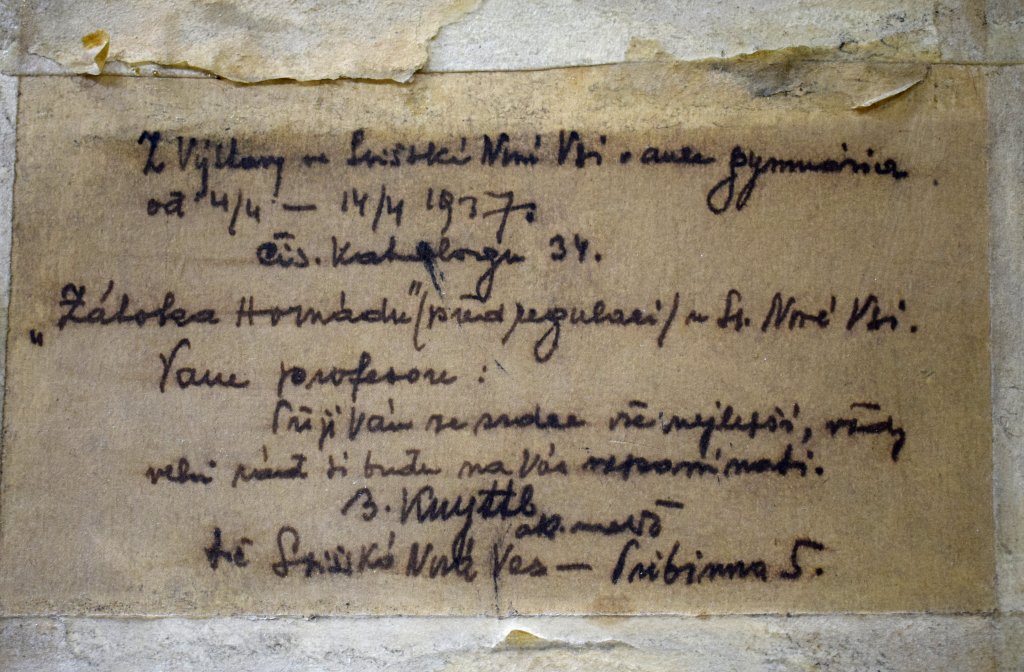 Z Výstavy v Spišské Nové Vsi v aule gymnásia
od 4/4 – 14/4 1937.
čís. Katalogu 34.
„Zátoka Hornádu" (před regulací) v Sp. Nové Vsi.
Pane profesore :
Přeji Vám ze srdce vše nejlepší, vždy
velmi rád si budu na Vás vzpomínati.
B. Knyttl
ak. malíř
Spišská Nová Ves – Pribinova 5.